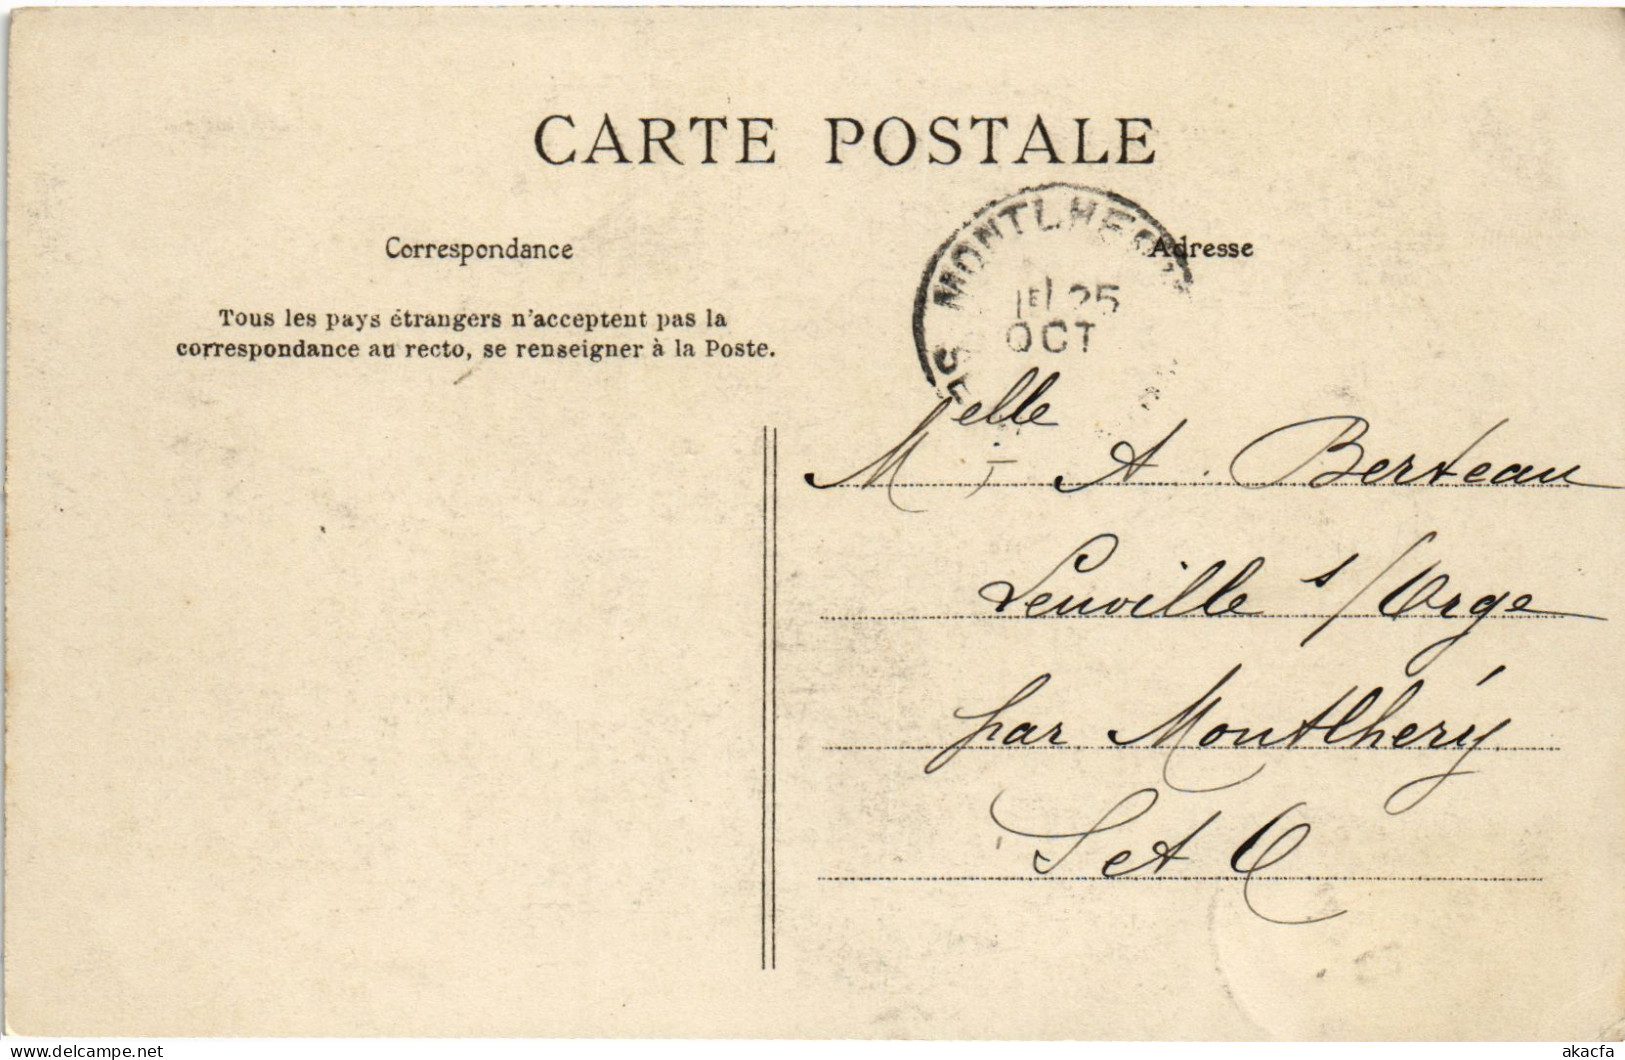 CARTE POSTALE
Correspondance
Adresse
Tous les pays étrangers n'acceptent pas la
correspondance au recto, se renseigner à la Poste.
MONTLHE
25
OCT
Melle A. Berteau
Leuville s/Orge
par Montlhéry
S et O
delcampe.net
akacfa